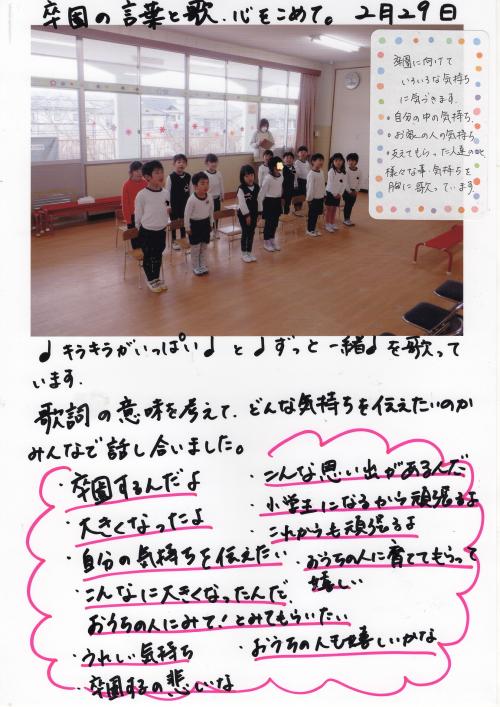 卒園の言葉と歌、心をこめて。 2月29日
卒園に向けて
いろいろな気持ち
に気づきます。
・自分の中の気持ち
・お家の人の気持ち
・支えてもらった人達のこと
様々な事・気持ちを
胸に歌っています。
♩キラキラがいっぱい♩と♩ずっと一緒♩を歌って
います。
歌詞の意味を考えて、どんな気持ちを伝えたいのか
みんなで話し合いました。
・卒園するんだよ
・大きくなったよ
・自分の気持ちを伝えたい
・こんなに大きくなったんだと
おうちの人にみて!とみてもらいたい
・うれしい気持ち
・卒園するの悲しいな
・こんな思い出があるんだ
・小学生になるから頑張るよ
これからも頑張るよ
・おうちの人に育ててもらって
嬉しい
・おうちの人も嬉しいかな